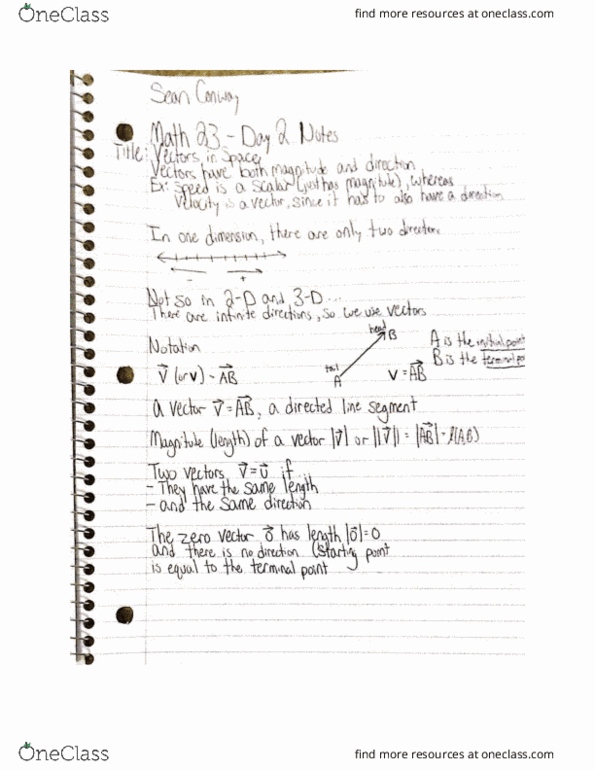 OneClass
find more resources at oneclass.com
Sean Conway
Math 23 - Day 2 Notes
Title: Vectors in Space
Vectors have both magnitude and direction
Ex: Speed is a scalar (just has magnitude), whereas
velocity is a vector, since it has to also have a direction
In one dimension, there are only two directions
- +
Not so in 2-D and 3-D...
There are infinite directions, so we use vectors
Notation
head B
tail A
A is the initial point
B is the terminal po
V⃗ (or v) - AB⃗
v = AB⃗
a vector V⃗ = AB⃗, a directed line segment
Magnitude (length) of a vector |V⃗| or ||V⃗|| = |AB⃗| - (A,B)
Two vectors V⃗ = U⃗ if
- They have the same length
- and the same direction
The zero vector 0⃗ has length |0⃗| = 0
and there is no direction (starting point
is equal to the terminal point
OneClass
find more resources at oneclass.com